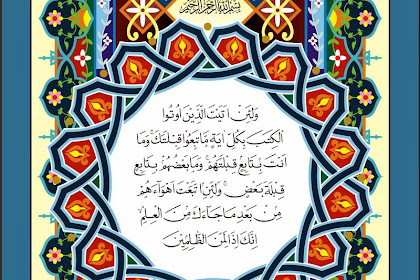 بِسْمِ اللهِ الرَّحْمٰنِ الرَّحِيْمِ
وَلَئِنْ اَتَيْتَ الَّذِيْنَ اُوْتُوا
الْكِتٰبَ بِكُلِّ اٰيَةٍ مَّا تَبِعُوْا قِبْلَتَكَ ۚ وَمَآ
اَنْتَ بِتَابِعٍ قِبْلَتَهُمْ ۚ وَمَا بَعْضُهُمْ بِتَابِعٍ
قِبْلَةَ بَعْضٍ ۗ وَلَئِنِ اتَّبَعْتَ اَهْوَآءَهُمْ
مِّنْۢ بَعْدِ مَا جَآءَكَ مِنَ الْعِلْمِ ۙ
اِنَّكَ اِذًا لَّمِنَ الظّٰلِمِيْنَ